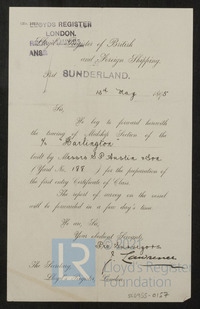 LLOYDS REGISTER
LONDON.
Lloyd's Register of British
and Foreign Shipping.
Port SUNDERLAND.
14th May 1895
Sir,
We beg to forward herewith
the tracing of Midship Section of the
"Burlington"
built by Messrs S. P. Austin & Son
(Yard No. 188) for the preparation of
the first entry Certificate of Class.
The report of survey on the vessel
will be forwarded in a few days time
We are, Sir,
Your obedient Servants,
The Surveyors
Lawrence
The Secretary
Lloyd's Register, London.
Lloyd's Register
Foundation